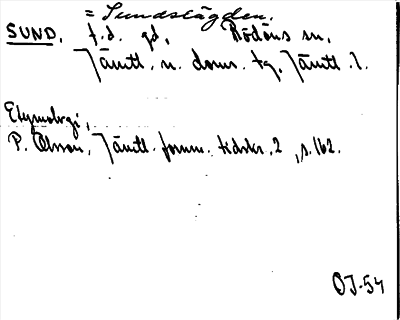 = Sundslägden.
SUND. f.d. gd, Rödöns sn,
Jämtl. n. doms. tg, Jämtl. l.
Etymologi,
P. Olsson, Jämtl. fornm. tidskr. 2, s. 162.
OJ-54